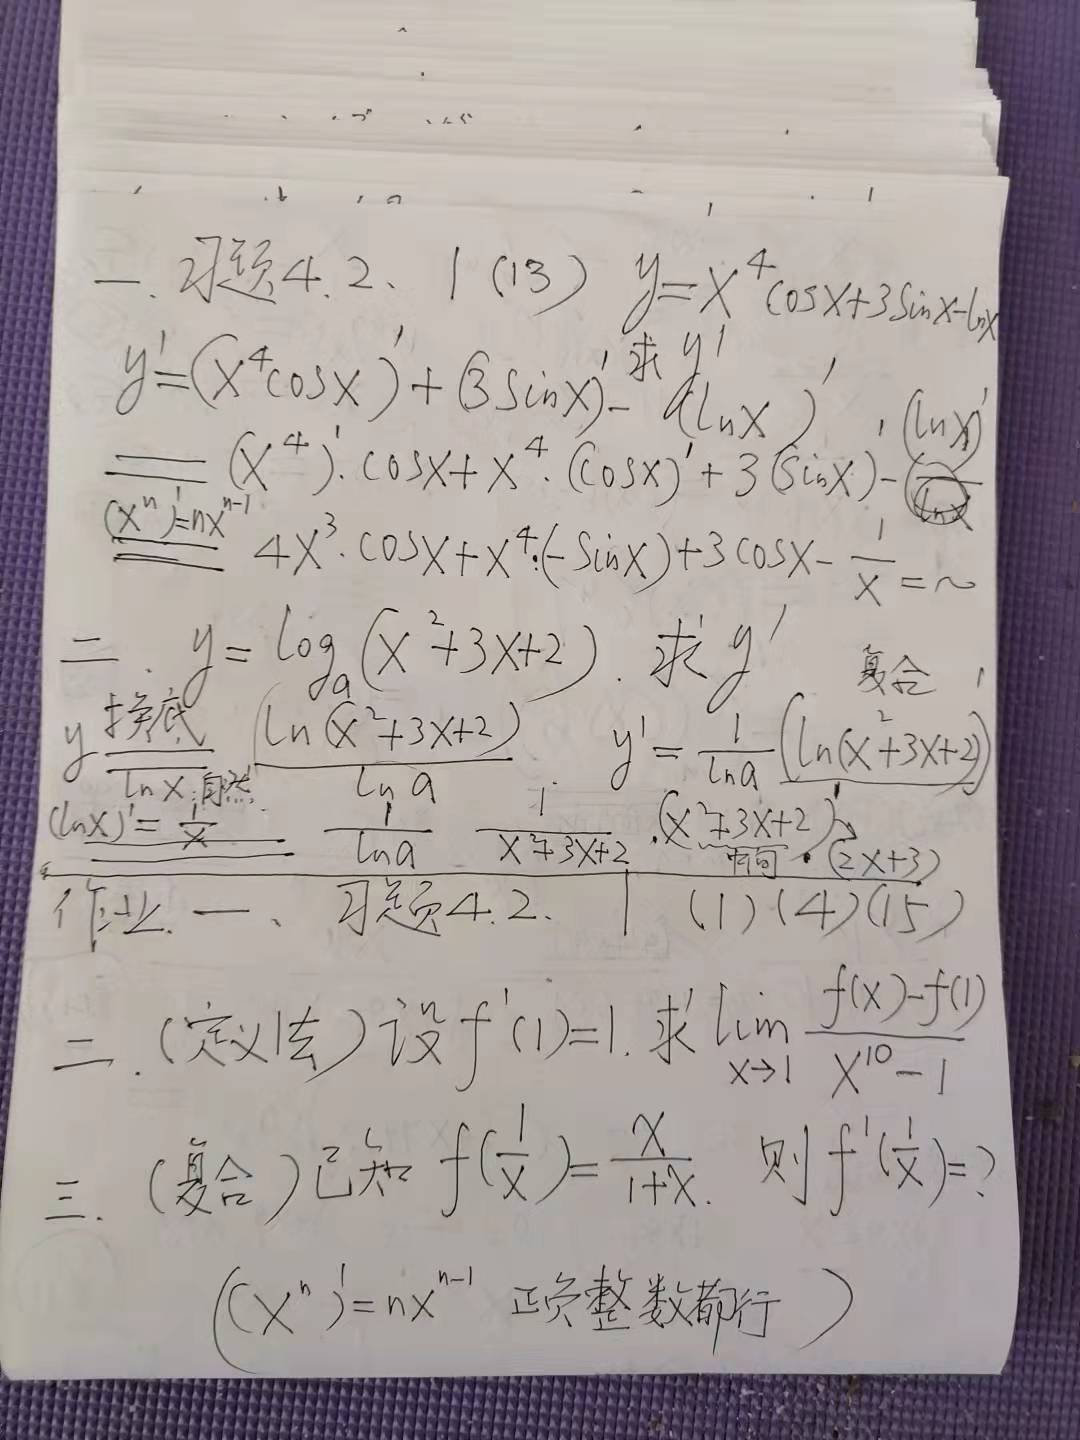 一. 习题4.2、 1 (13) y=x⁴cosx+3sinx-lnx
求y'
y'=(x⁴cosx)'+(3sinx)'-(lnx)'
(x⁴)'·cosx+x⁴·(cosx)'+3(sinx)'-(lnx)'
(xⁿ)'=nxⁿ⁻¹ 4x³·cosx+x⁴·(-sinx)+3cosx-1/x=~
二. y=logₐ(x²+3x+2). 求y'
复合
y 换底 ln(x²+3x+2)/lna . y'=1/lna (ln(x²+3x+2))'
lnx:自然
(lnx)'=1/x 1/lna 1/(x²+3x+2) ·(x²+3x+2)'
中间 ·(2x+3)
作业. 一、 习题4.2、 1 (1)(4)(15)
二. (定义法) 设f'(1)=1. 求 lim x→1 (f(x)-f(1))/(x¹⁰-1)
三. (复合) 已知 f(1/x)=x/(1+x). 则f'(1/x)=?
((xⁿ)'=nxⁿ⁻¹ 正负整数都行)